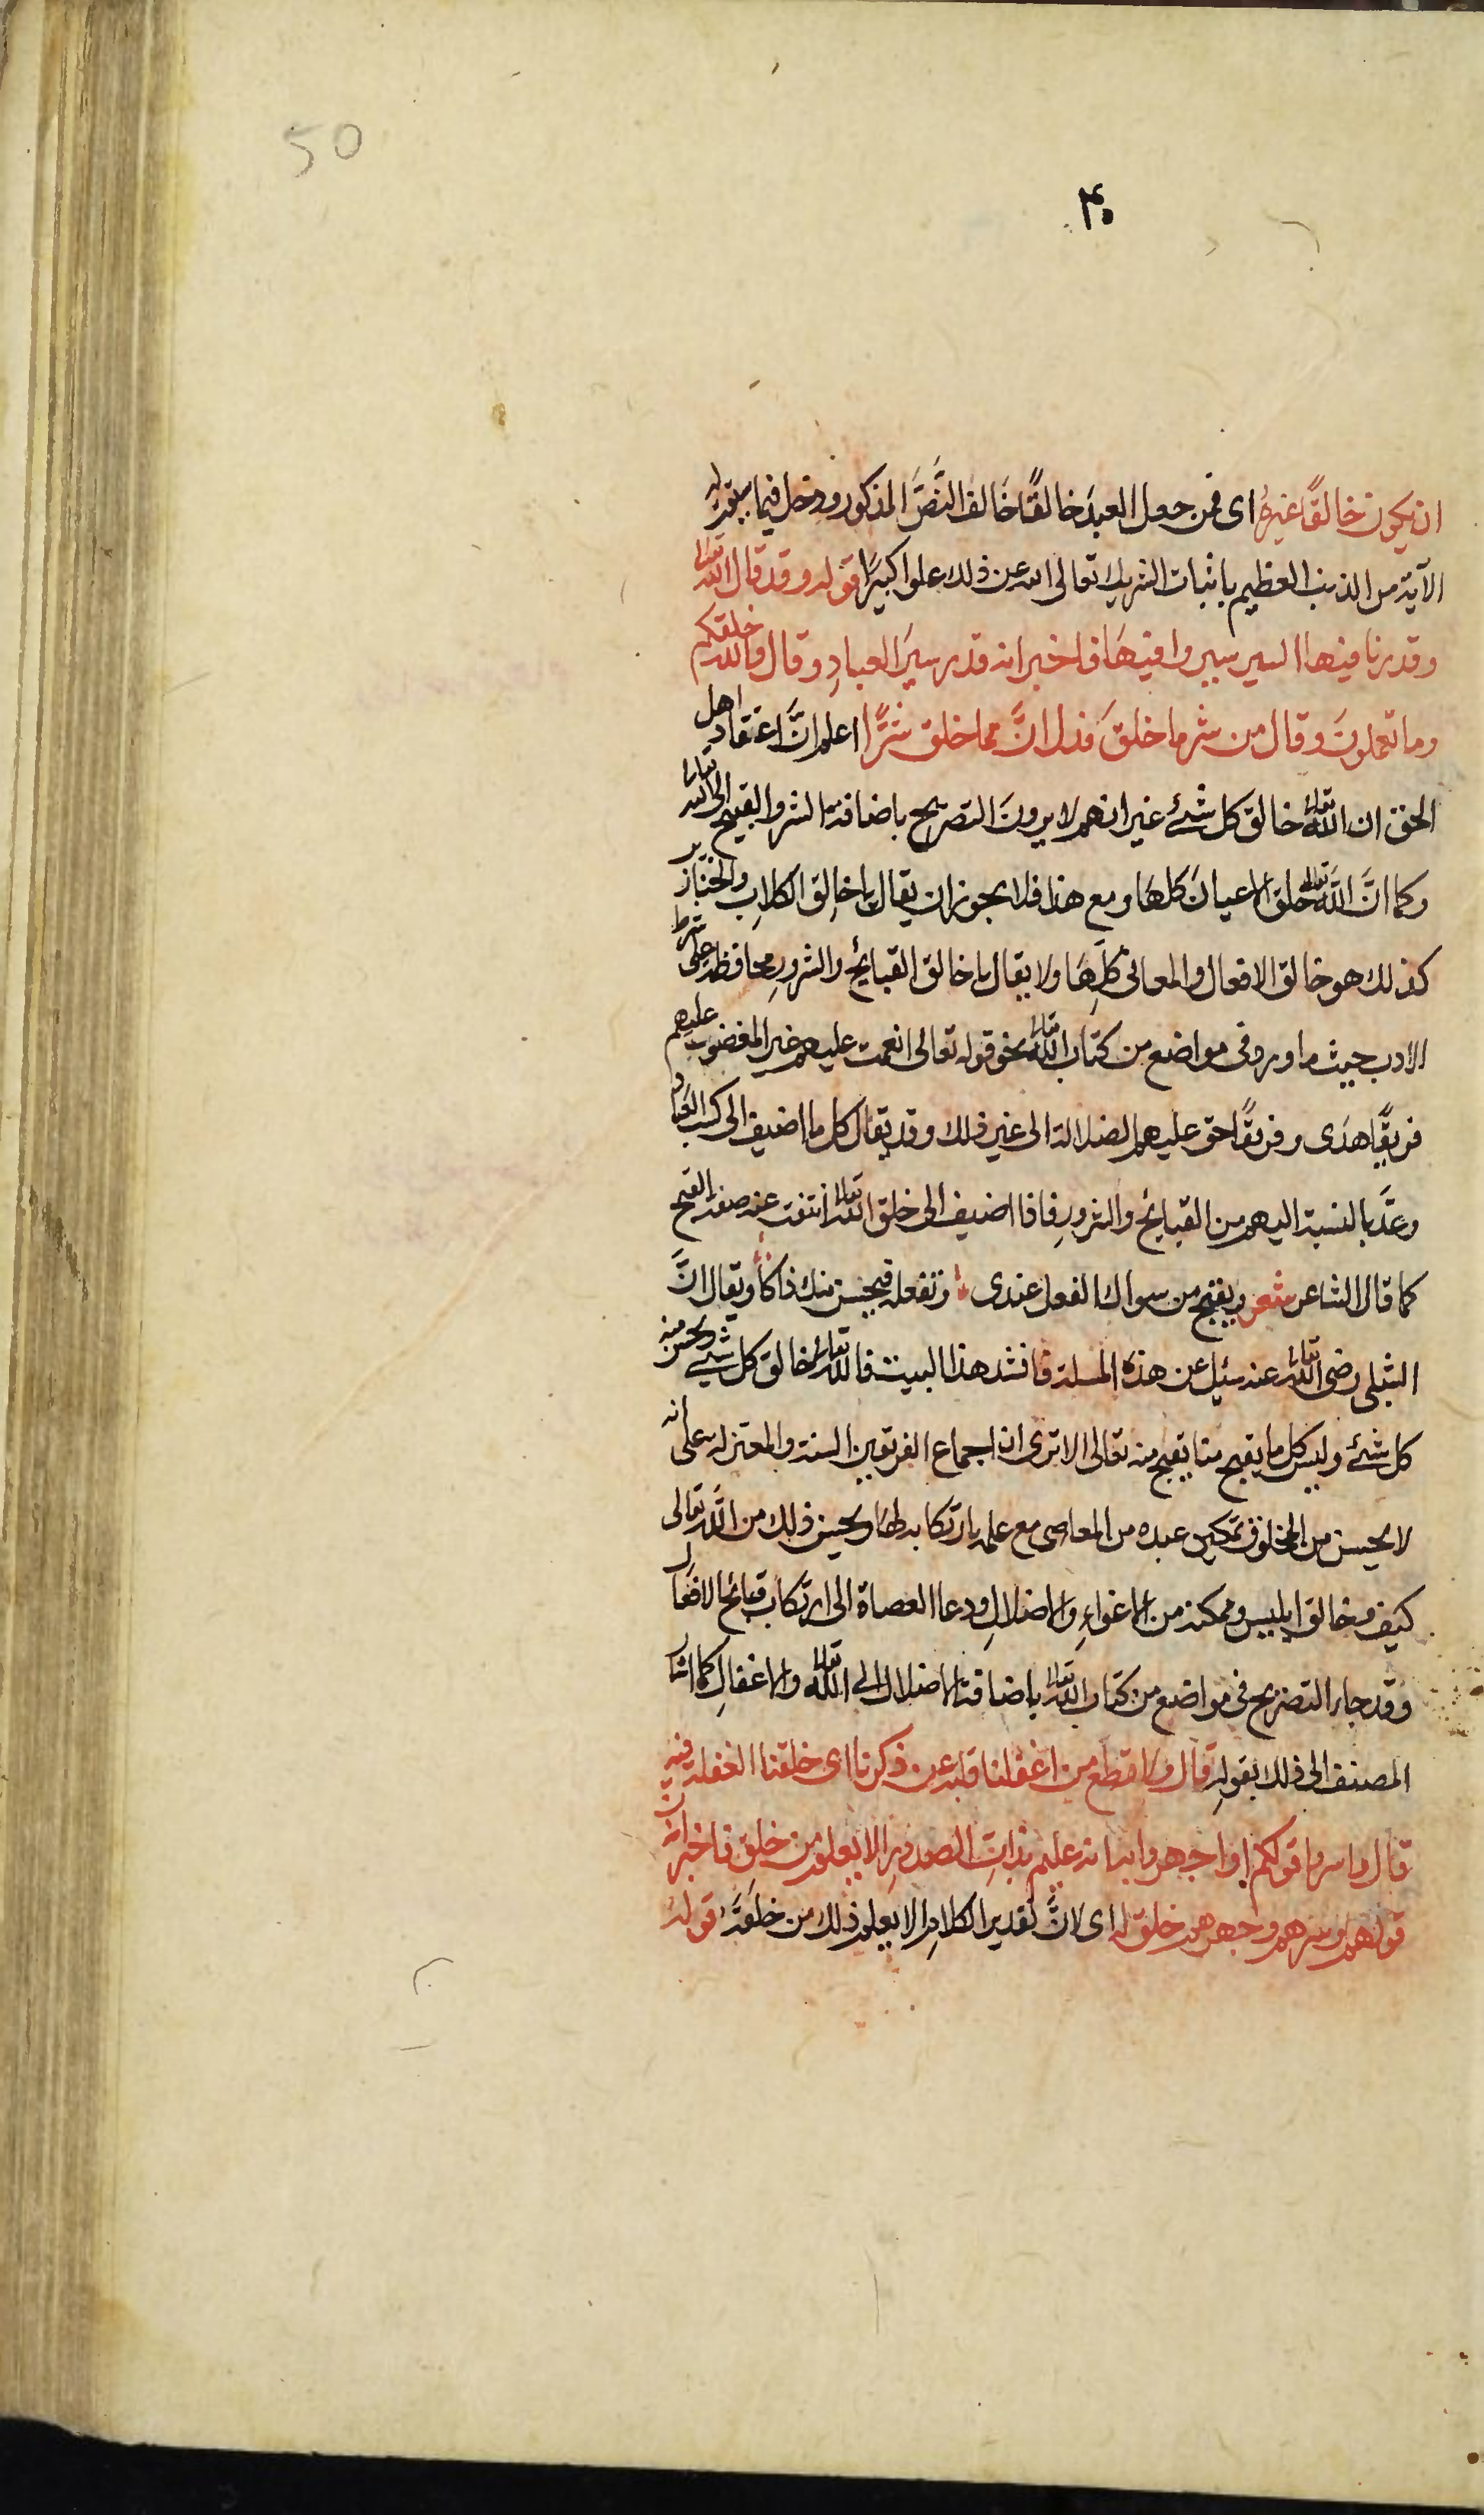 50
۴۰
ان يكون خالقًا غيره اى فمن جعل العبدَ خالقًا خَالف النَّصَّ المذكور ودخل فيما
الآية من الذنب العظيم باثبات الشريك تعالى الله عن ذلك علوا كبيرًا قوله وقد قال الله تعالى
وقدرنا فيها السير سيروا فيهَا فاخبر انه قدر سيرَ العبادِ وقال والله خلقكم
وما تعملونَ وقال من شر ما خلقَ فدل انَّ مما خلق شرًّا اعلم انَّ اعتقاد اهل
الحق ان الله تعالى خالق كل شئ غير انهم لا يرونَ التصريح باضافة الشر والقبيح الى الله تعالى
وكما انَّ اللهَ تعالى خلق الاعيانَ كلهَا ومع هذا فلا يجوز ان يقال يا خالِق الكلابِ والخنازير
كذلك هو خالق الافعال والمعانى كلِّهَا ولا يقال يا خالق القبائح والشرورِ محافظة على شرط
الادب حيث ما ورد فى مواضع من كتاب الله تعالى نحو قوله تعالى انعمت عليهم غير المغضوب عليهم
فريقًا هدَى وفريقًا حق عليهم الضلالة الى غير ذلك وقد يقال كل ما اضيف الى كسب العباد
وعدَّ بالنسبة اليهم من القبائح والشرورِ فاذا اضيف الى خلق الله تعالى انتفت عنه صفة القبح
كما قال الشاعر شعر ويقبح من سواك الفعل عندى وتفعله فيحسن منك ذاكا ويقال انَّ
الشبلى رضى الله تعالى عنه سئِل عن هذه المسلة فانشد هذا البيت فالله تعالى خالق كل شئ ويحسن منه
كل شئ وليس كل ما يقبح منا يقبح منه تعالى الا ترى ان اجماع الفريقين السنة والمعتزلة على انه
لا يحسن من المخلوق تمكين عبده من المعاصى مع علمه بارتكابه لهَا ويحسن ذلك من الله تعالى
كيف وخالق ابليس وممكنه من الاغواءِ والاضلالِ ودعا العصاة الى ارتكاب قبائح الافعال
وقد جاء التصريح فى مواضع من كتاب الله تعالى باضافة الاضلال الى الله تعالى والاغفالِ كما اشار
المصنف الى ذلك بقولِه قال ولا تطع من اغفلنا قلبه عن ذكرنا اى خلقنا الغفلة فيه
قال واسروا قولكم او اجهروا به انه عليم بذاتِ الصدورِ الا يعلم من خلق فاخبر ان
قولهم وسرهم وجهرهم خلق له اى لانَّ تقدير الكلامِ الا يعلم ذلك من خلقَهُ قوله